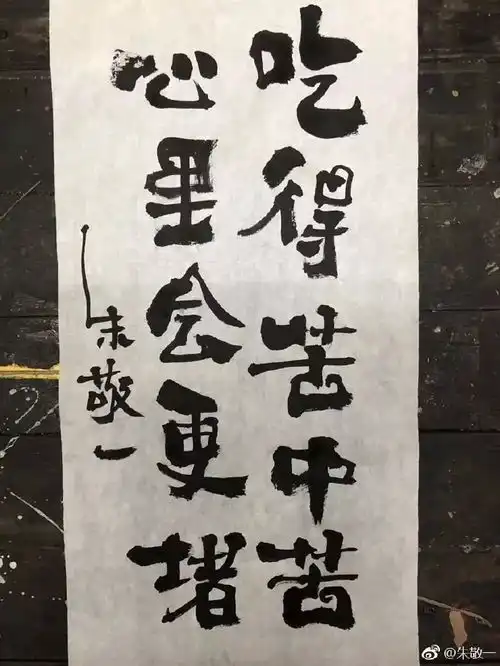 吃得苦中苦
心里会更堵
朱敬一
@朱敬一